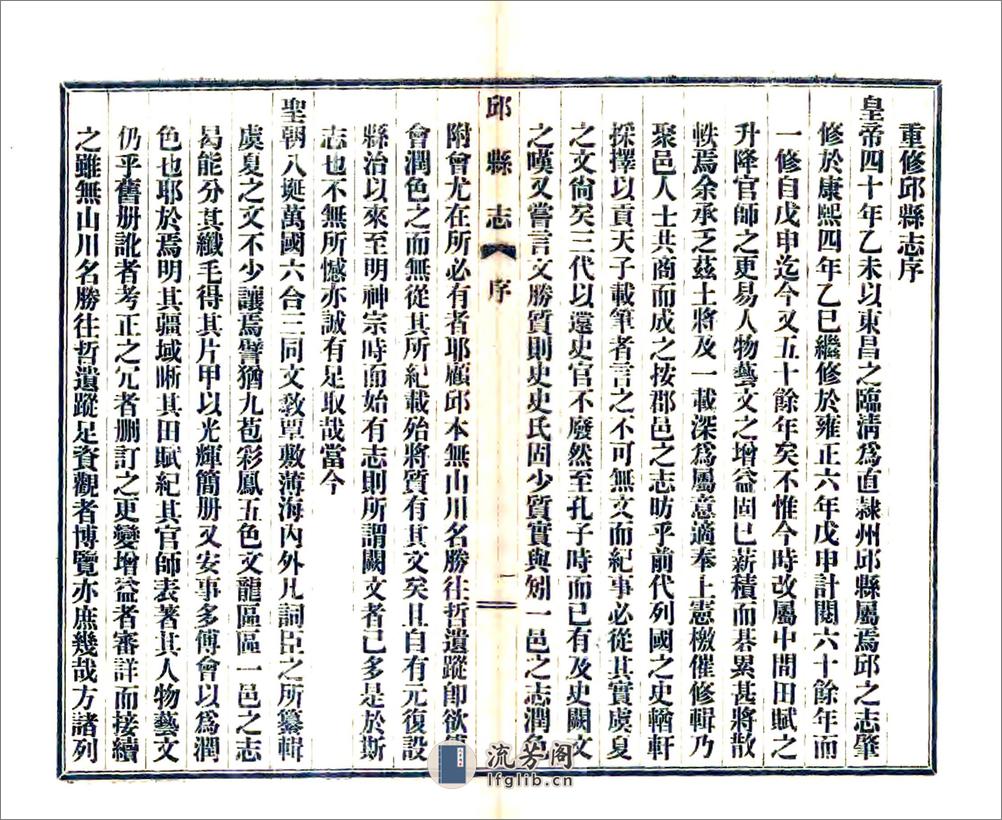 重修邱縣志序
皇帝四十年乙未以東昌之臨淸爲直隸州邱縣屬焉邱之志肇
修於康熙四年乙巳繼修於雍正六年戊申計閱六十餘年而
一修自戊申迄今又五十餘年矣不惟今時改屬中間田賦之
升降官師之更易人物藝文之增益固已薪積而碁累甚將散
軼焉余承乏茲土將及一載深爲屬意適奉上憲檄催修輯乃
聚邑人士共商而成之按郡邑之志昉乎前代列國之史輶軒
採擇以貢天子載筆者言之不可無文而紀事必從其實虞夏
之文尙矣三代以還史官不廢然至孔子時而已有及史闕文
之嘆又嘗言文勝質則史史氏固少質實與矧一邑之志潤色
邱縣志 序 一
附會尤在所必有者耶顧邱本無山川名勝往哲遺蹤卽欲
會潤色之而無從其所紀載殆將質有其文矣且自有元復設
縣治以來至明神宗時而始有志則所謂闕文者已多是於斯
志也不無所憾亦誠有足取哉當今
聖朝八埏萬國六合三同文敎覃敷薄海內外凡詞臣之所纂輯
虞夏之文不少讓焉譬猶九苞彩鳳五色文龍區區一邑之志
曷能分其纖毛得其片甲以光輝簡册又安事多傅會以爲潤
色也耶於焉明其疆域晰其田賦紀其官師表著其人物藝文
仍乎舊册訛者考正之冗者刪訂之更變增益者審詳而接續
之雖無山川名勝往哲遺蹤足資觀者博覽亦庶幾哉方諸列
流芳阁
lfglib.cn